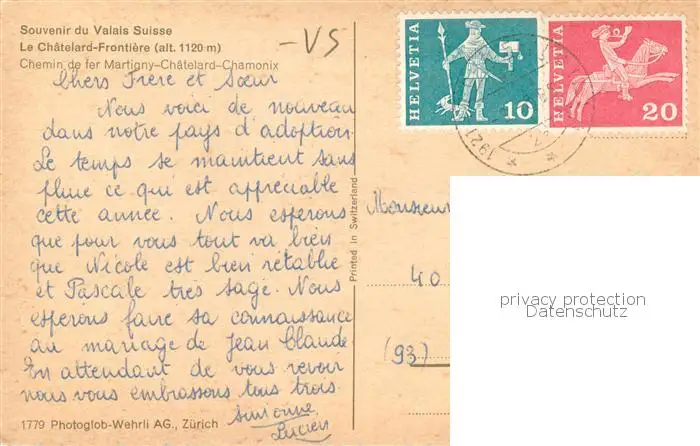 Souvenir du Valais Suisse
Le Châtelard-Frontière (alt. 1120 m)
Chemin de fer Martigny-Châtelard-Chamonix
-VS
HELVETIA
10
HELVETIA
20
1921
Chers Frère et Sœur
Nous voici de nouveau
dans notre pays d'adoption.
Le temps se maintient sans
pluie ce qui est appréciable
cette année. Nous esperons
que pour vous tout va bien
que Nicole est bien rétablie
et Pascale tres sage. Nous
esperons faire sa connaissance
au mariage de Jean Claude.
En attendant de vous revoir
nous vous embrassons tous trois.
Simonne
Lucien
Printed in Switzerland
Monsieur
40
(93)
privacy protection
Datenschutz
1779 Photoglob-Wehrli AG., Zürich